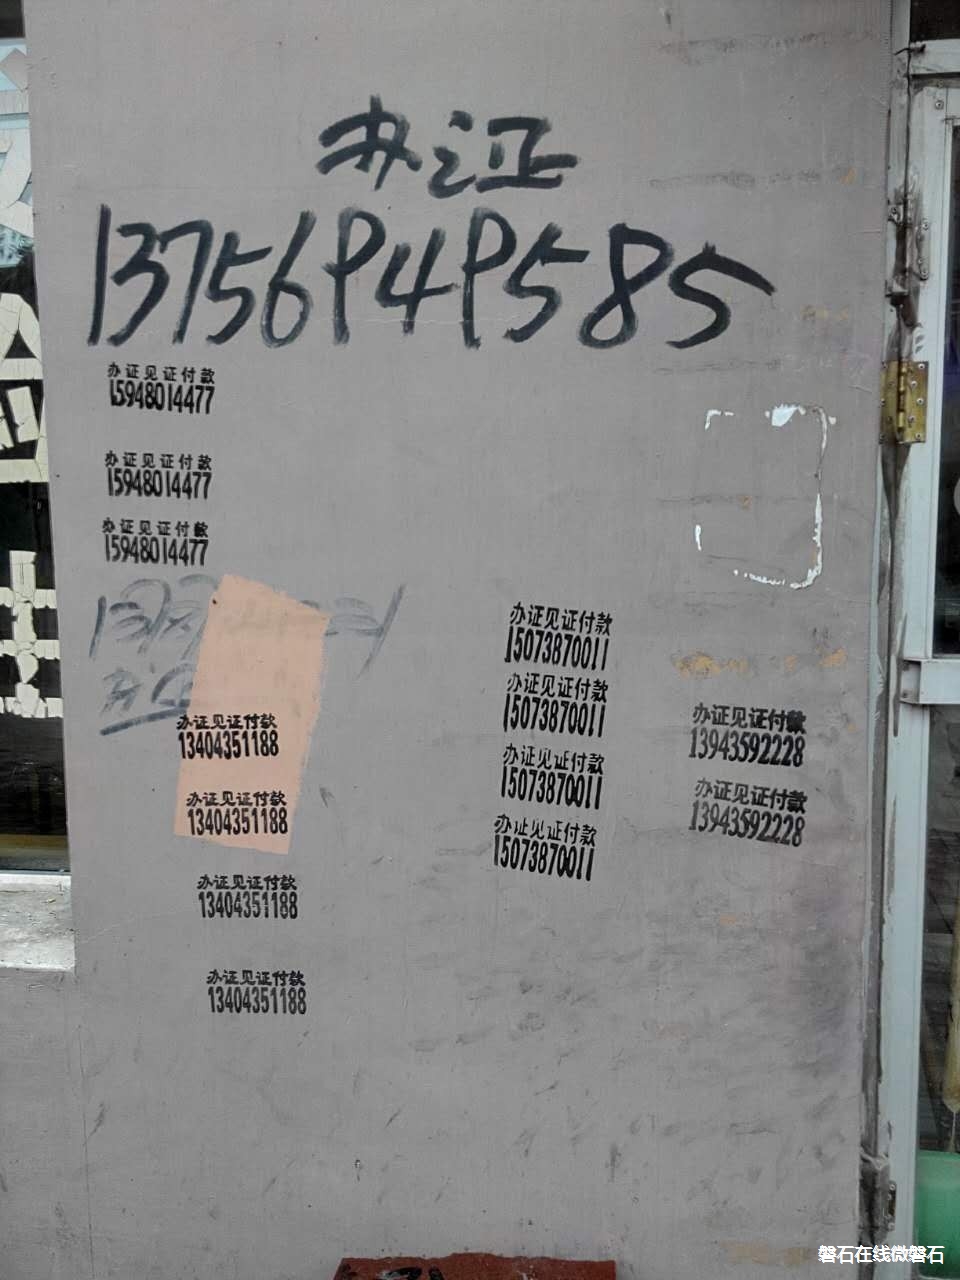 办证
13756949585
办证见证付款
15948014477
办证见证付款
15948014477
办证见证付款
15948014477
办证见证付款
13404351188
办证见证付款
13404351188
办证见证付款
13404351188
办证见证付款
13404351188
办证见证付款
15073870011
办证见证付款
15073870011
办证见证付款
15073870011
办证见证付款
15073870011
办证见证付款
13943592228
办证见证付款
13943592228
磐石在线微磐石